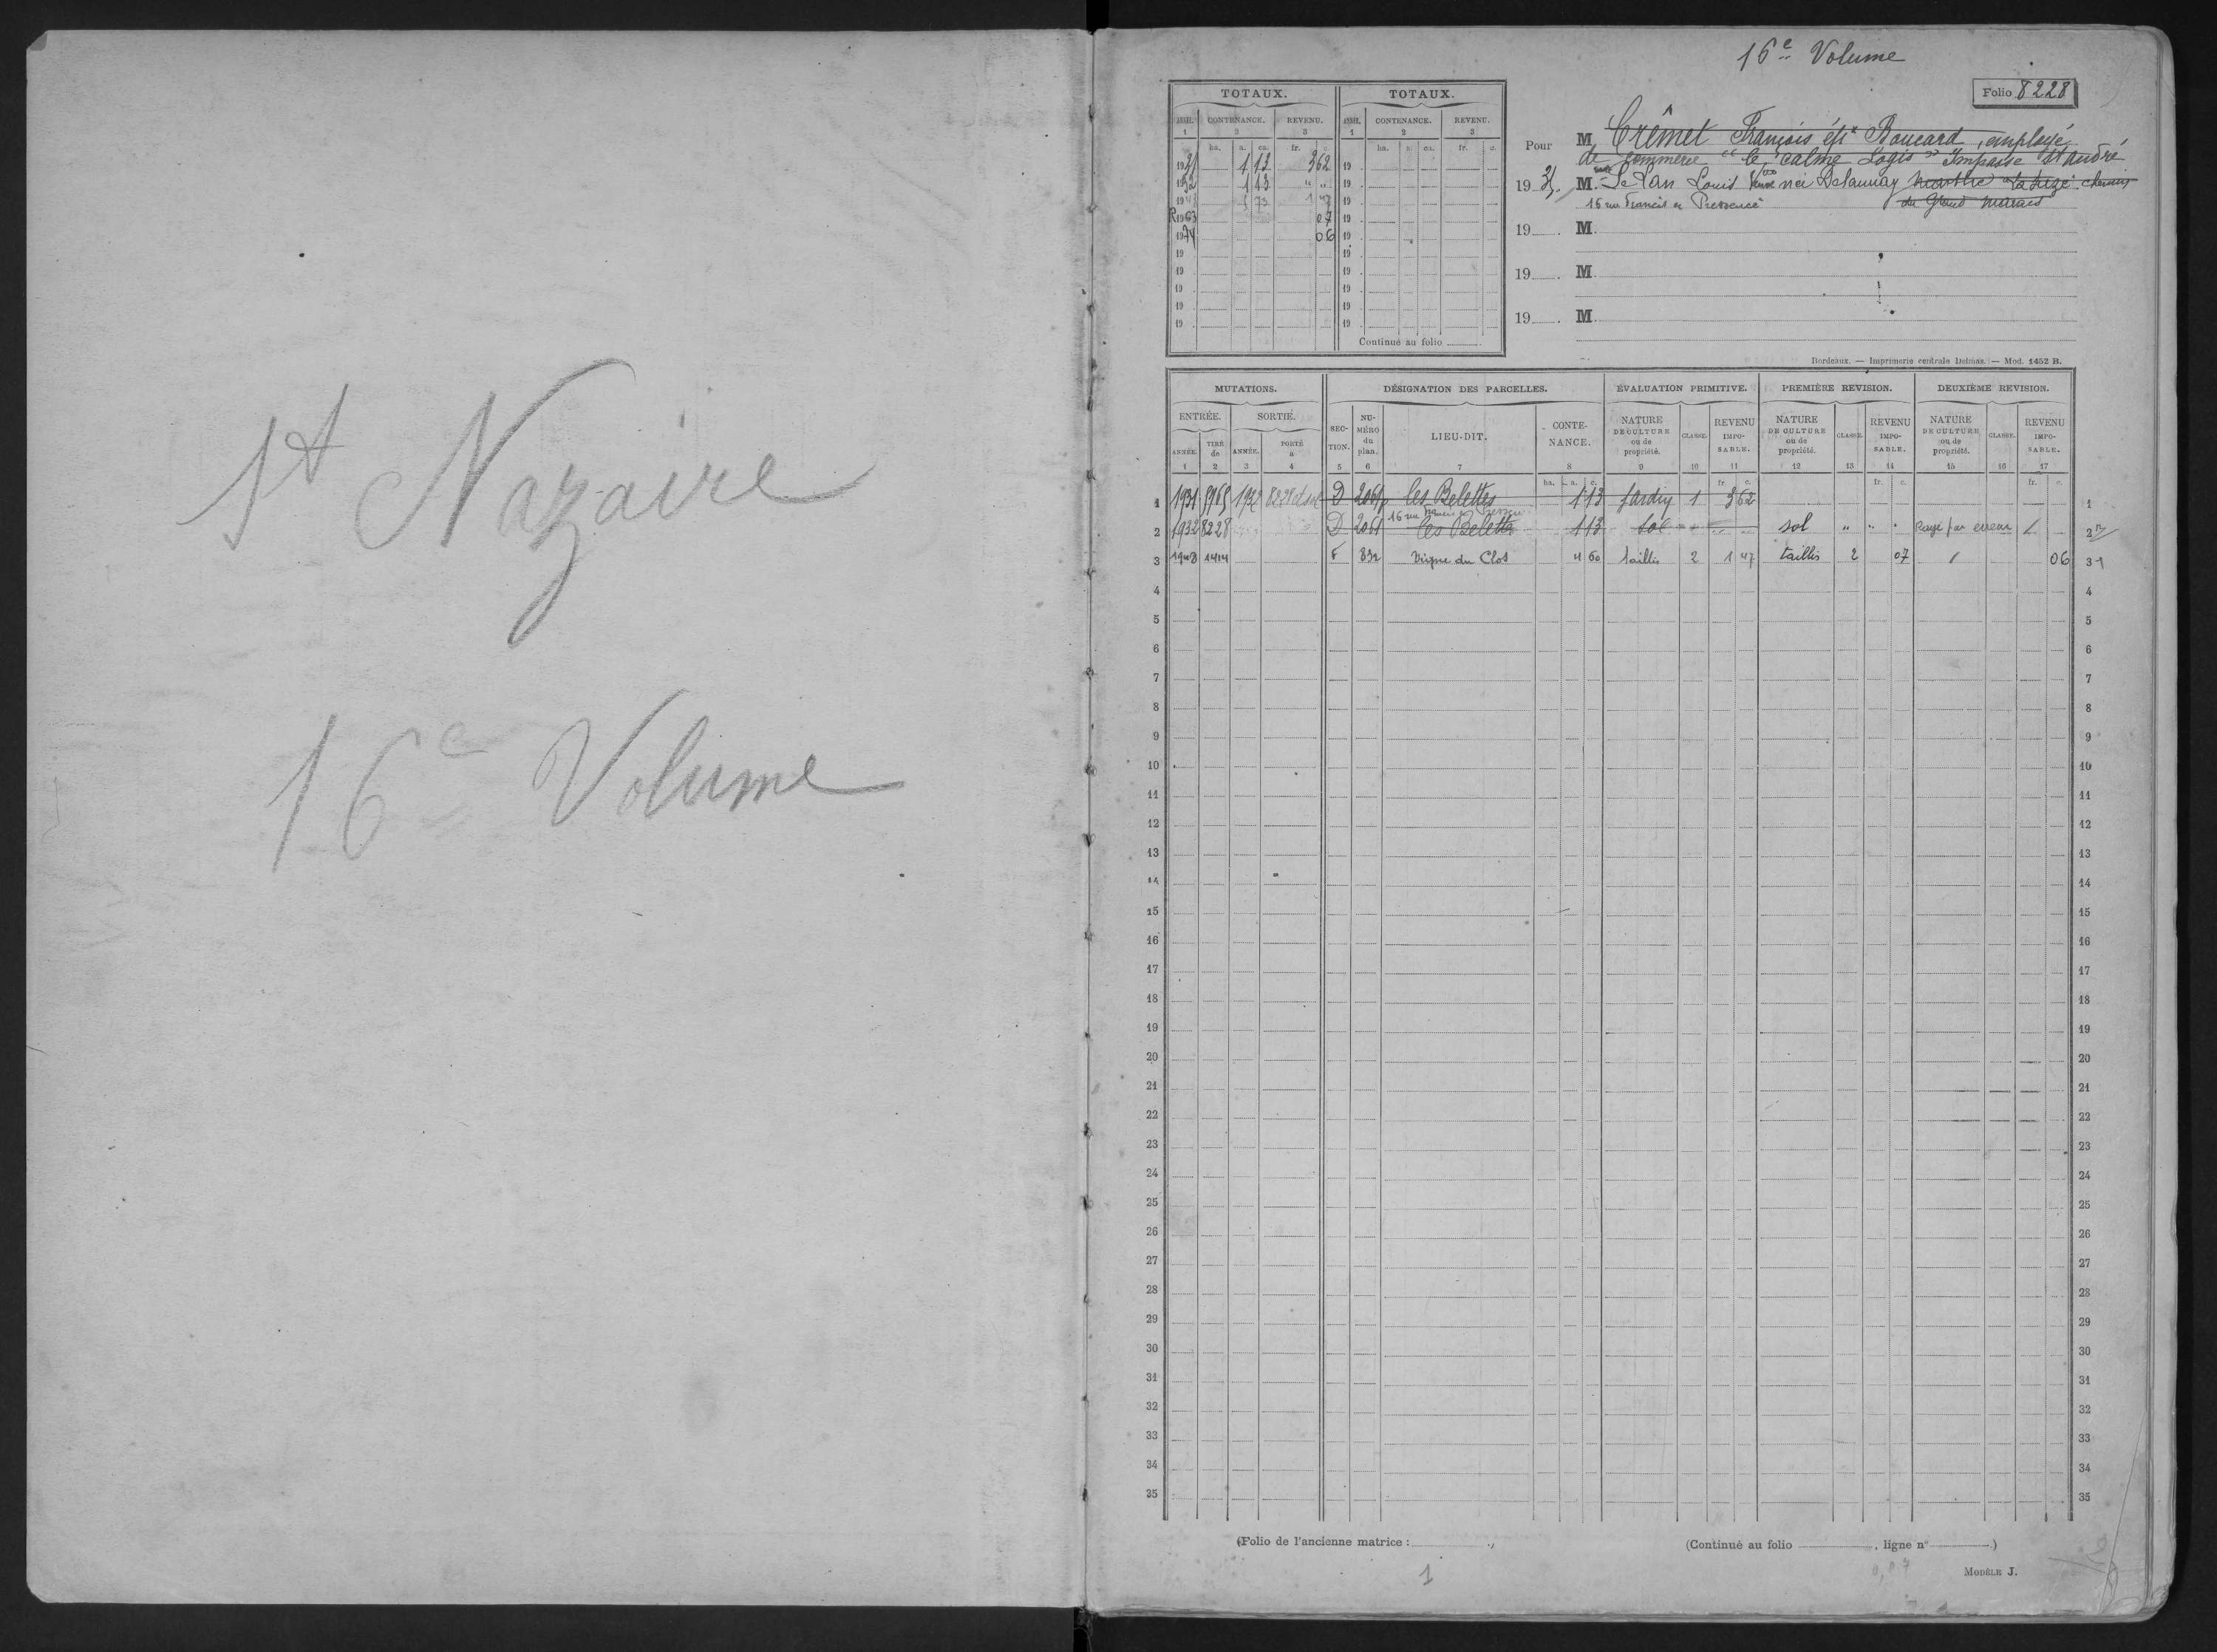 St Nazaire
16e Volume
16e Volume
Folio 8228
TOTAUX. TOTAUX.
ANNÉE. CONTENANCE. REVENU. ANNÉE. CONTENANCE. REVENU.
1 2 3 1 2 3
ha. a. ca. fr. c. ha. a. ca. fr. c.
1931 1 13 3 62 19
1932 1 13 " " 19
19 5 73 1 47 19
R1963 07 19
1974 06 19
19 19
19 19
19 19
19 19
19 19
Continué au folio
Pour M Crêmet François épx Boucard, employé
de commerce "le calme Logis" Impasse St André
1935. M. Le Lan Louis née Delaunay chemin
16 rue Francis de Pressencé du Grand Marais
19 . M.
19 . M.
19 . M.
Bordeaux. — Imprimerie centrale Delmas. — Mod. 1452 B.
MUTATIONS. DÉSIGNATION DES PARCELLES. ÉVALUATION PRIMITIVE. PREMIÈRE REVISION. DEUXIÈME REVISION.
ENTRÉE. SORTIE. SECTION. NUMÉRO du plan. LIEU-DIT. CONTENANCE. NATURE DE CULTURE ou de propriété. CLASSE. REVENU IMPOSABLE. NATURE DE CULTURE ou de propriété. CLASSE. REVENU IMPOSABLE. NATURE DE CULTURE ou de propriété. CLASSE. REVENU IMPOSABLE.
ANNÉE. TIRÉ de ANNÉE. PORTÉ à
1 2 3 4 5 6 7 8 9 10 11 12 13 14 15 16 17
ha. a. c. fr. c. fr. c. fr. c.
1 1931 5965 1932 8228 d sol D 2061p les Belettes 1 13 Jardin 1 3 62 1
16 rue Francis de Pressencé
2 1932 8228 D 2061 les Belettes 1 13 Sol " " sol " " " Rayé par erreur 2
3 1948 1414 F 832 Vigne du Clos 4 60 taillis 2 1 47 taillis 2 07 06 3
4 4
5 5
6 6
7 7
8 8
9 9
10 10
11 11
12 12
13 13
14 14
15 15
16 16
17 17
18 18
19 19
20 20
21 21
22 22
23 23
24 24
25 25
26 26
27 27
28 28
29 29
30 30
31 31
32 32
33 33
34 34
35 35
(Folio de l'ancienne matrice : (Continué au folio , ligne n° )
1 0,07 MODÈLE J.